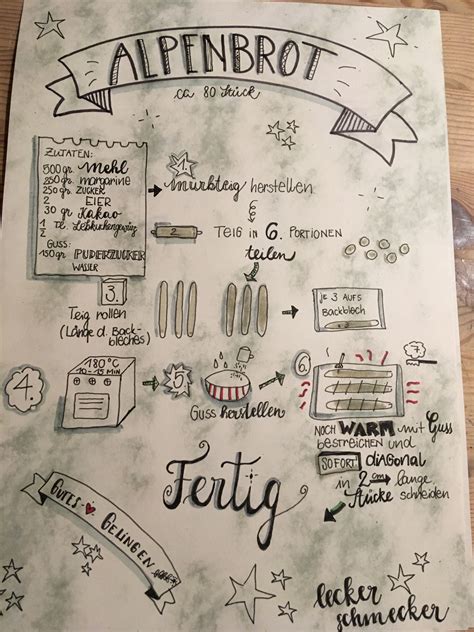 ALPENBROT
ca 80 Stück
ZUTATEN:
500 gr. Mehl
250 gr. margarine
250 gr. ZUCKER
2 EIER
30 gr Kakao
1/2 Tl. Lebkuchengewürz
GUSS:
150 gr. PUDERZUCKER
WASSER
1.
murbteig herstellen
2
TEIG IN 6. PORTIONEN
teilen
3.
Teig rollen
(Länge d. Back-
bleches)
je 3 AUFS
Backblech
4.
180°C
10-15 MIN
5.
Guss herstellen
6.
7.
NOCH WARM mit Guss
bestreichen und
SOFORT diagonal
in 2 cm lange
Stücke schneiden
Fertig
Gutes Gelingen
lecker
schmecker